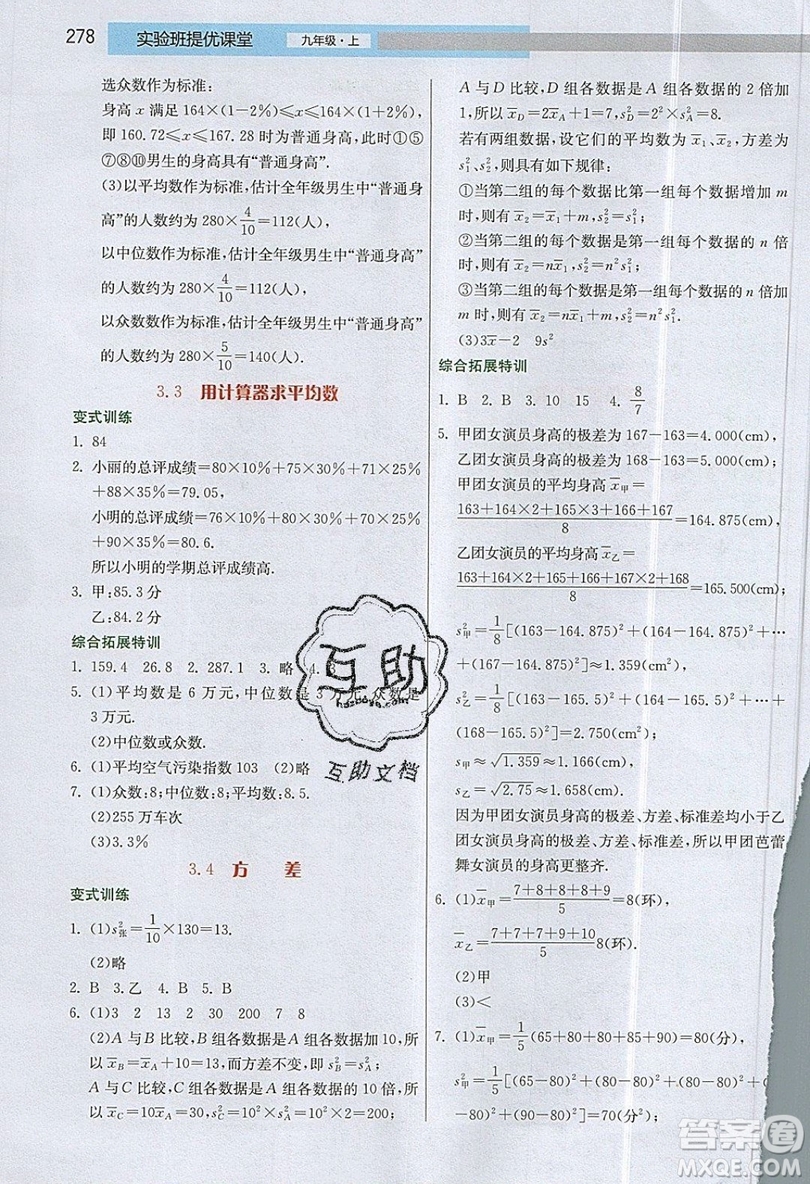 278 实验班提优课堂 九年级·上
选众数作为标准:
身高 x 满足 164×(1−2%)⩽x⩽164×(1+2%),
即 160.72⩽x⩽167.28 时为普通身高,此时①⑤
⑦⑧⑩男生的身高具有“普通身高”.
(3)以平均数作为标准,估计全年级男生中“普通身
高”的人数约为 280×4/10=112(人),
以中位数作为标准,估计全年级男生中“普通身高”
的人数约为 280×4/10=112(人),
以众数作为标准,估计全年级男生中“普通身高”
的人数约为 280×5/10=140(人).
3.3 用计算器求平均数
变式训练
1. 84
2. 小丽的总评成绩=80×10%+75×30%+71×25%
+88×35%=79.05,
小明的总评成绩=76×10%+80×30%+70×25%
+90×35%=80.6.
所以小明的学期总评成绩高.
3. 甲:85.3 分
乙:84.2 分
综合拓展特训
1. 159.4 26.8 2. 287.1 3. 略 4.
5. (1)平均数是 6 万元,中位数是 3 万元,众数是
3 万元.
(2)中位数或众数.
6. (1)平均空气污染指数 103 (2)略
7. (1)众数:8;中位数:8;平均数:8.5.
(2)255 万车次
(3)3.3%
3.4 方 差
变式训练
1. (1)s²张=1/10×130=13.
(2)略
2. B 3. 乙 4. B 5. B
6. (1)3 2 13 2 30 200 7 8
(2)A 与 B 比较,B 组各数据是 A 组各数据加 10,所
以 x̄B=x̄A+10=13.而方差不变,即 s²B=s²A=2;
A 与 C 比较,C 组各数据是 A 组各数据的 10 倍,
所以 x̄C=10x̄A=30,s²C=10²×s²A=10²×2=200;
A 与 D 比较,D 组各数据是 A 组各数据的 2 倍加
1,所以 x̄D=2x̄A+1=7,s²D=2²×s²A=8.
若有两组数据,设它们的平均数为 x̄1、x̄2,方差为
s²1、s²2,则具有如下规律:
①当第二组的每个数据比第一组每个数据增加 m
时,则有 x̄2=x̄1+m,s²2=s²1;
②当第二组的每个数据是第一组每个数据的 n 倍
时,则有 x̄2=nx̄1,s²2=n²s²1;
③当第二组的每个数据是第一组每个数据的 n 倍加
m 时,则有 x̄2=nx̄1+m,s²2=n²s²1.
(3)3x̄−2 9s²
综合拓展特训
1. B 2. B 3. 10 15 4. 8/7
5. 甲团女演员身高的极差为 167−163=4.000(cm),
乙团女演员身高的极差为 168−163=5.000(cm);
甲团女演员的平均身高 x̄甲=
(163+164×2+165×3+166+167)/8=164.875(cm),
乙团女演员的平均身高 x̄乙=
(163+164×2+165+166+167×2+168)/8=165.500(cm);
s²甲=1/8[(163−164.875)²+(164−164.875)²+…
+(167−164.875)²]≈1.359(cm²);
s²乙=1/8[(163−165.5)²+(164−165.5)²+…+
(168−165.5)²]=2.750(cm²);
s甲≈√1.359≈1.166(cm),
s乙=√2.75≈1.658(cm).
因为甲团女演员身高的极差、方差、标准差均小于乙
团女演员身高的极差、方差、标准差,所以甲团芭蕾
舞女演员的身高更整齐.
6. (1)x̄甲=(7+8+8+8+9)/5=8(环),
x̄乙=(7+7+7+9+10)/5 8(环)
(2)甲
(3)<
7. (1)x̄甲=1/5(65+80+80+85+90)=80(分),
s²甲=1/5[(65−80)²+(80−80)²+(80−80)²+
80)²+(90−80)²]=70(分²);
互助
互助文档
答案圈
MXQE.COM